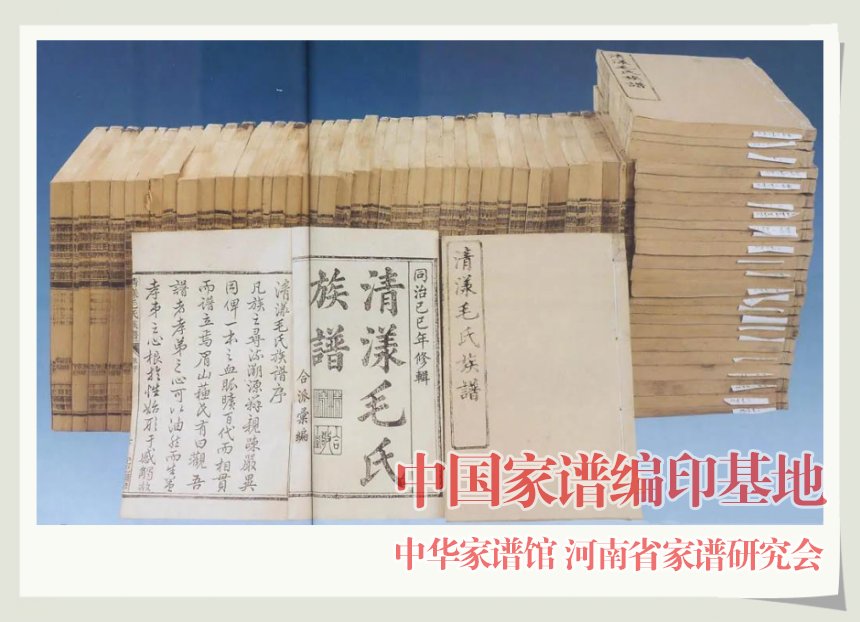 清漾毛氏族譜
清漾毛氏族譜
同治己巳年修輯
清漾毛氏
族譜
合派彙編
清漾毛氏族譜序
凡族之尋流溯源辨親疎嚴異
同俾一本之血脈曠百代而相貫
而譜立焉眉山蘇氏有曰觀吾
譜者孝弟之心可以油然而生蓋
孝弟之心根於性始形于感觸故
中国家谱编印基地
中华家谱馆 河南省家谱研究会